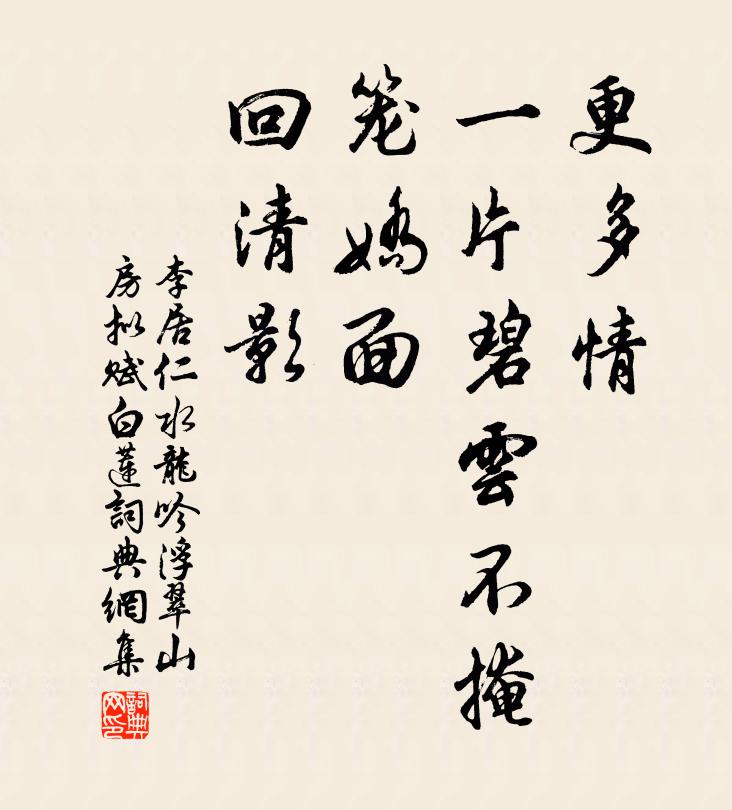 更多情
一片碧雲不掩
笼嬌面
回清影
李居仁水龍吟浮翠山
房拟賦白蓮詞典網集
詞典
网印